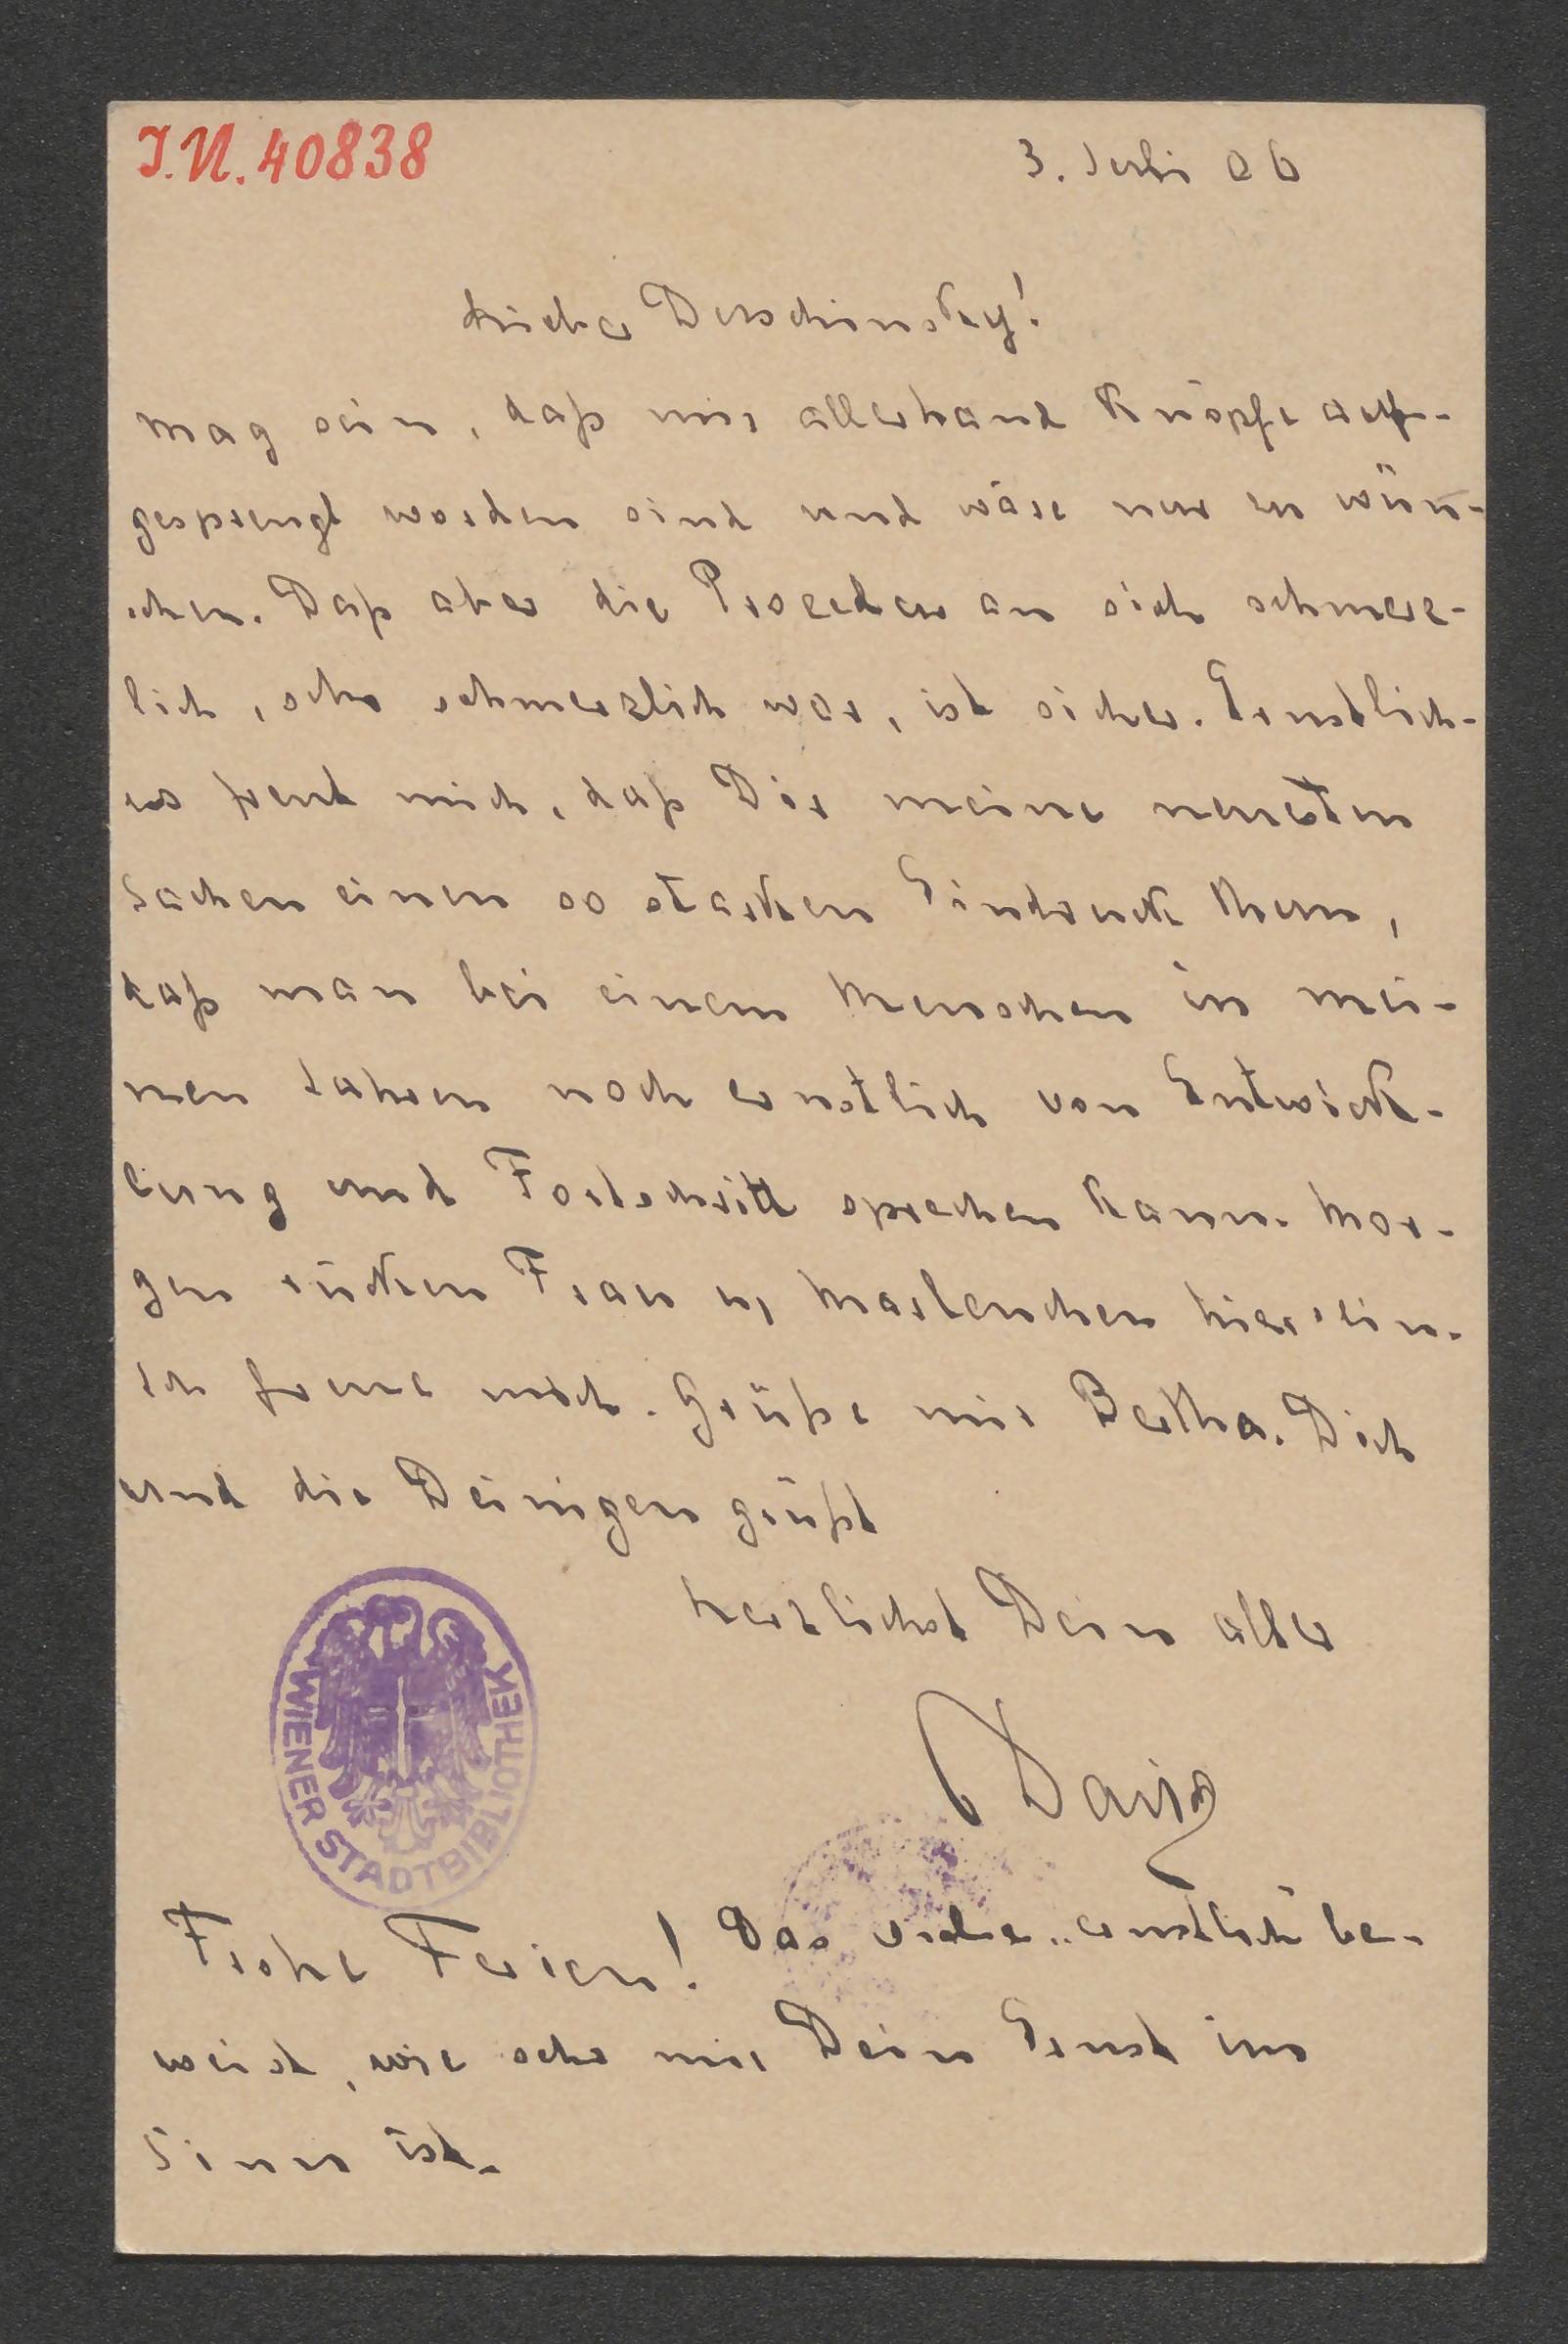 I.N. 40838
3. Juli 06
Lieber Derschinsky!
Mag sein, daß mir allerhand Knöpfe auf-
gesprengt worden sind und wäre nur zu wün-
schen. Daß aber die Procedur an sich schmerz-
lich, sehr schmerzlich war, ist sicher. Ernstlich
es freut mich, daß Dir meine neuesten
Sachen einen so starken Eindruck thun,
daß man bei einem Menschen in mei-
nen Jahren noch ernstlich von Entwick-
lung und Fortschritt sprechen kann. Mor-
gen rücken Frau u. Marlenchen hier ein.
Ich freue mich. Grüße mir Bertha. Dich
und die Deinigen grüßt
herzlichst Dein alter
David
WIENER STADTBIBLIOTHEK
Frohe Ferien! Das viele "ernstlich" be-
weist, wie sehr mir Dein Ernst im
Sinn ist.